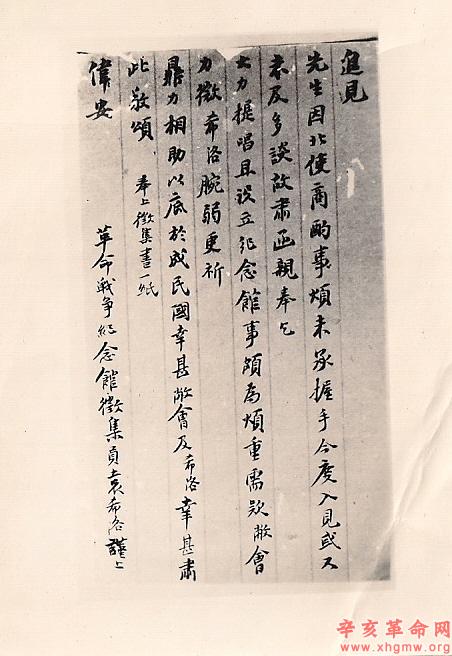 進見
先生因北使商酌事煩未承握手今度入見或又
未及多談故肅函親奉乞
大力提唱且設立紀念館事頗為煩重需款敝會
力微希洛腕弱更祈
鼎力相助以底於成民國幸甚敝會及希洛幸甚肅
此敬頌
偉安
奉上徵集書一紙
革命戰爭紀念館徵集員袁希洛謹上
辛亥革命网
www.xhgmw.org